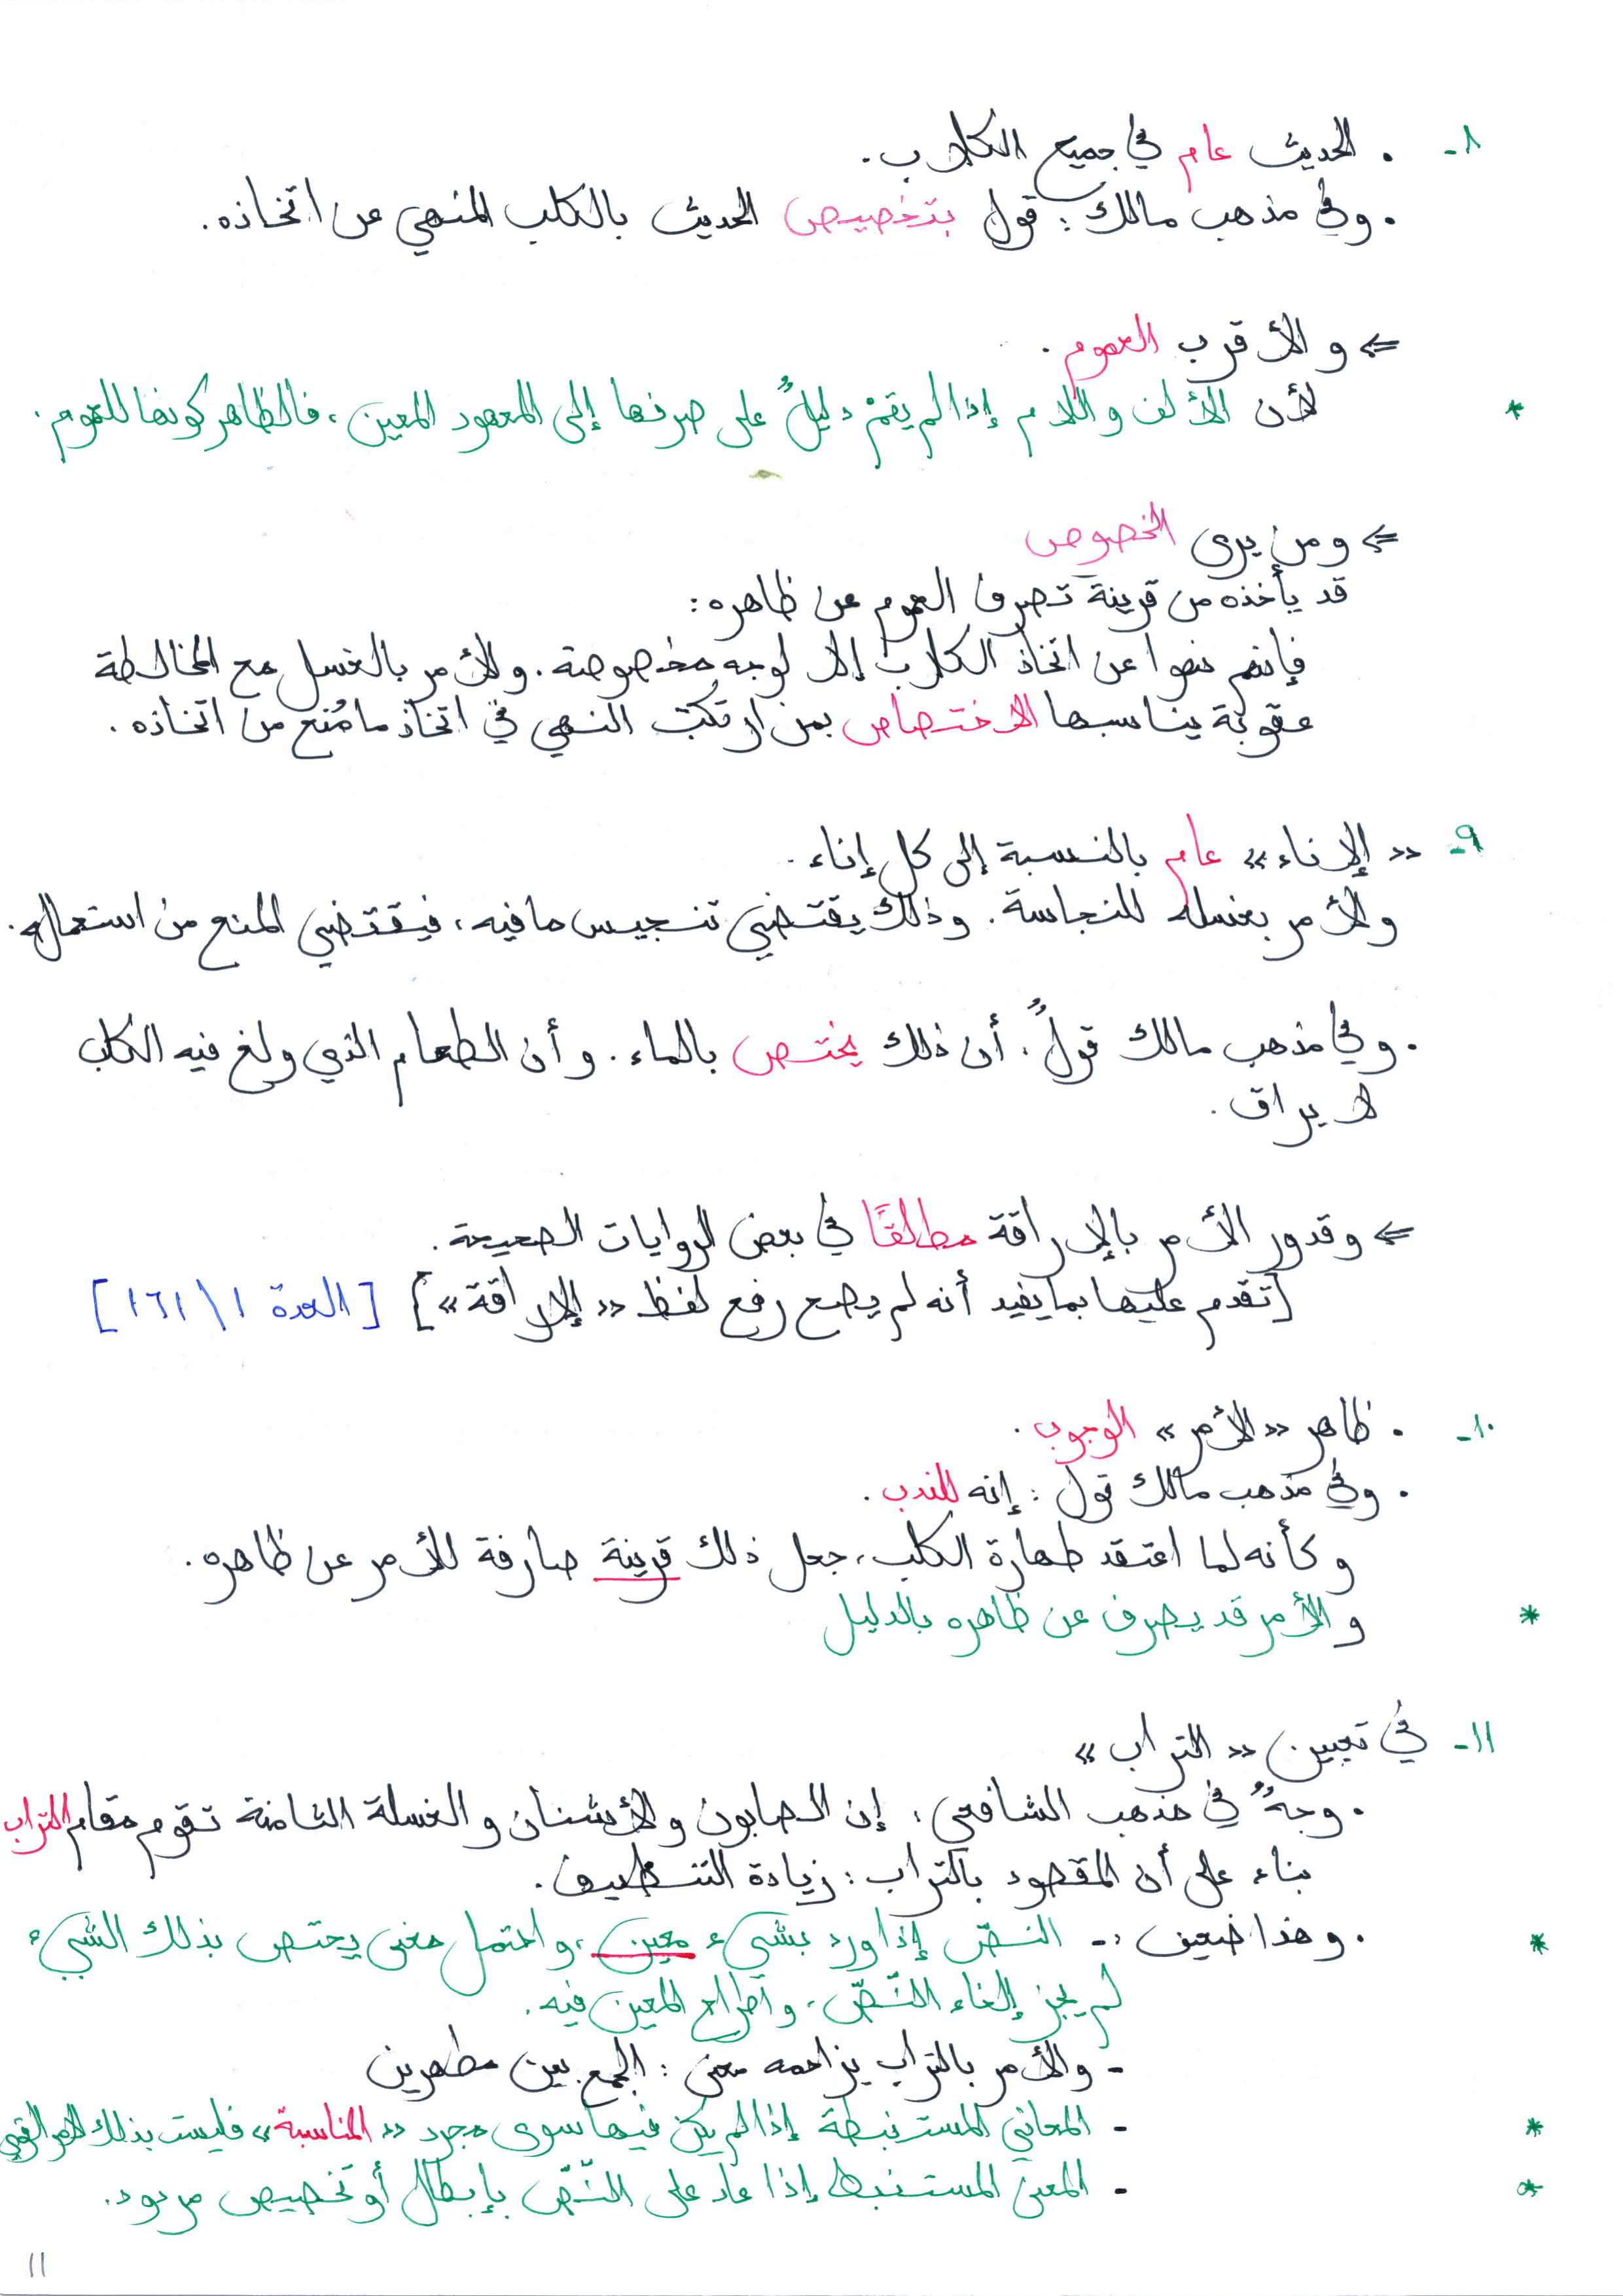 ٨- . الحديث عام في جميع الكلاب.
. وفي مذهب مالك: قول بتخصيص الحديث بالكلب المنهي عن اتخاذه.
⇐ والأقرب العموم.
* لأن الألف واللام إذا لم يقمْ دليلٌ على صرفها إلى المعهود المعين، فالظاهر كونها للعموم.
⇐ ومن يرى الخصوص
قد يأخذه من قرينة تصرف العموم عن ظاهره:
فإنهم نهوا عن اتخاذ الكلاب إلا لوجه مخصوصة. والأمر بالغسل مع المخالطة
عقوبة يناسبها الاختصاص بمن ارتكب النهي في اتخاذ ما مُنع من اتخاذه.
٩- «الإناء» عام بالنسبة إلى كل إناء.
والأمر بغسله للنجاسة. وذلك يقتضي تنجيس ما فيه، فيقتضي المنع من استعماله.
. وفي مذهب مالك قولٌ: أن ذلك يختص بالماء. وأن الطعام الذي ولغ فيه الكلب
لا يراق.
⇐ وقد ورد الأمر بالإراقة مطلقًا في بعض الروايات الصحيحة.
[تقدم عليها بما يفيد أنه لم يصح رفع لفظ «الإراقة»] [العدة ١\١٦١]
١٠- . ظاهر «الأمر» الوجوب.
. وفي مذهب مالك قول: إنه للندب.
وكأنه لما اعتقد طهارة الكلب، جعل ذلك قرينة صارفة للأمر عن ظاهره.
* والأمر قد يصرف عن ظاهره بالدليل
١١- في تعيين «التراب»
. وجهٌ في مذهب الشافعي، إن الصابون والأشنان والغسلة الثامنة تقوم مقام التراب
بناء على أن المقصود بالتراب: زيادة التنظيف.
* . وهذا ضعيف :- النصّ إذا ورد بشيء معين، واحتمل معنى يختص بذلك الشيء
لم يجز إلغاء النّصّ، واطراح المعين فيه.
- والأمر بالتراب يزاحمه معنى: الجمع بين مطهرين
* - المعاني المستنبطة إذا لم يكن فيها سوى مجرد «المناسبة» فليست بذلك الأمر القوي
* - المعنى المستنبط إذا عاد على النّصّ بإبطال أو تخصيص مردود.
١١